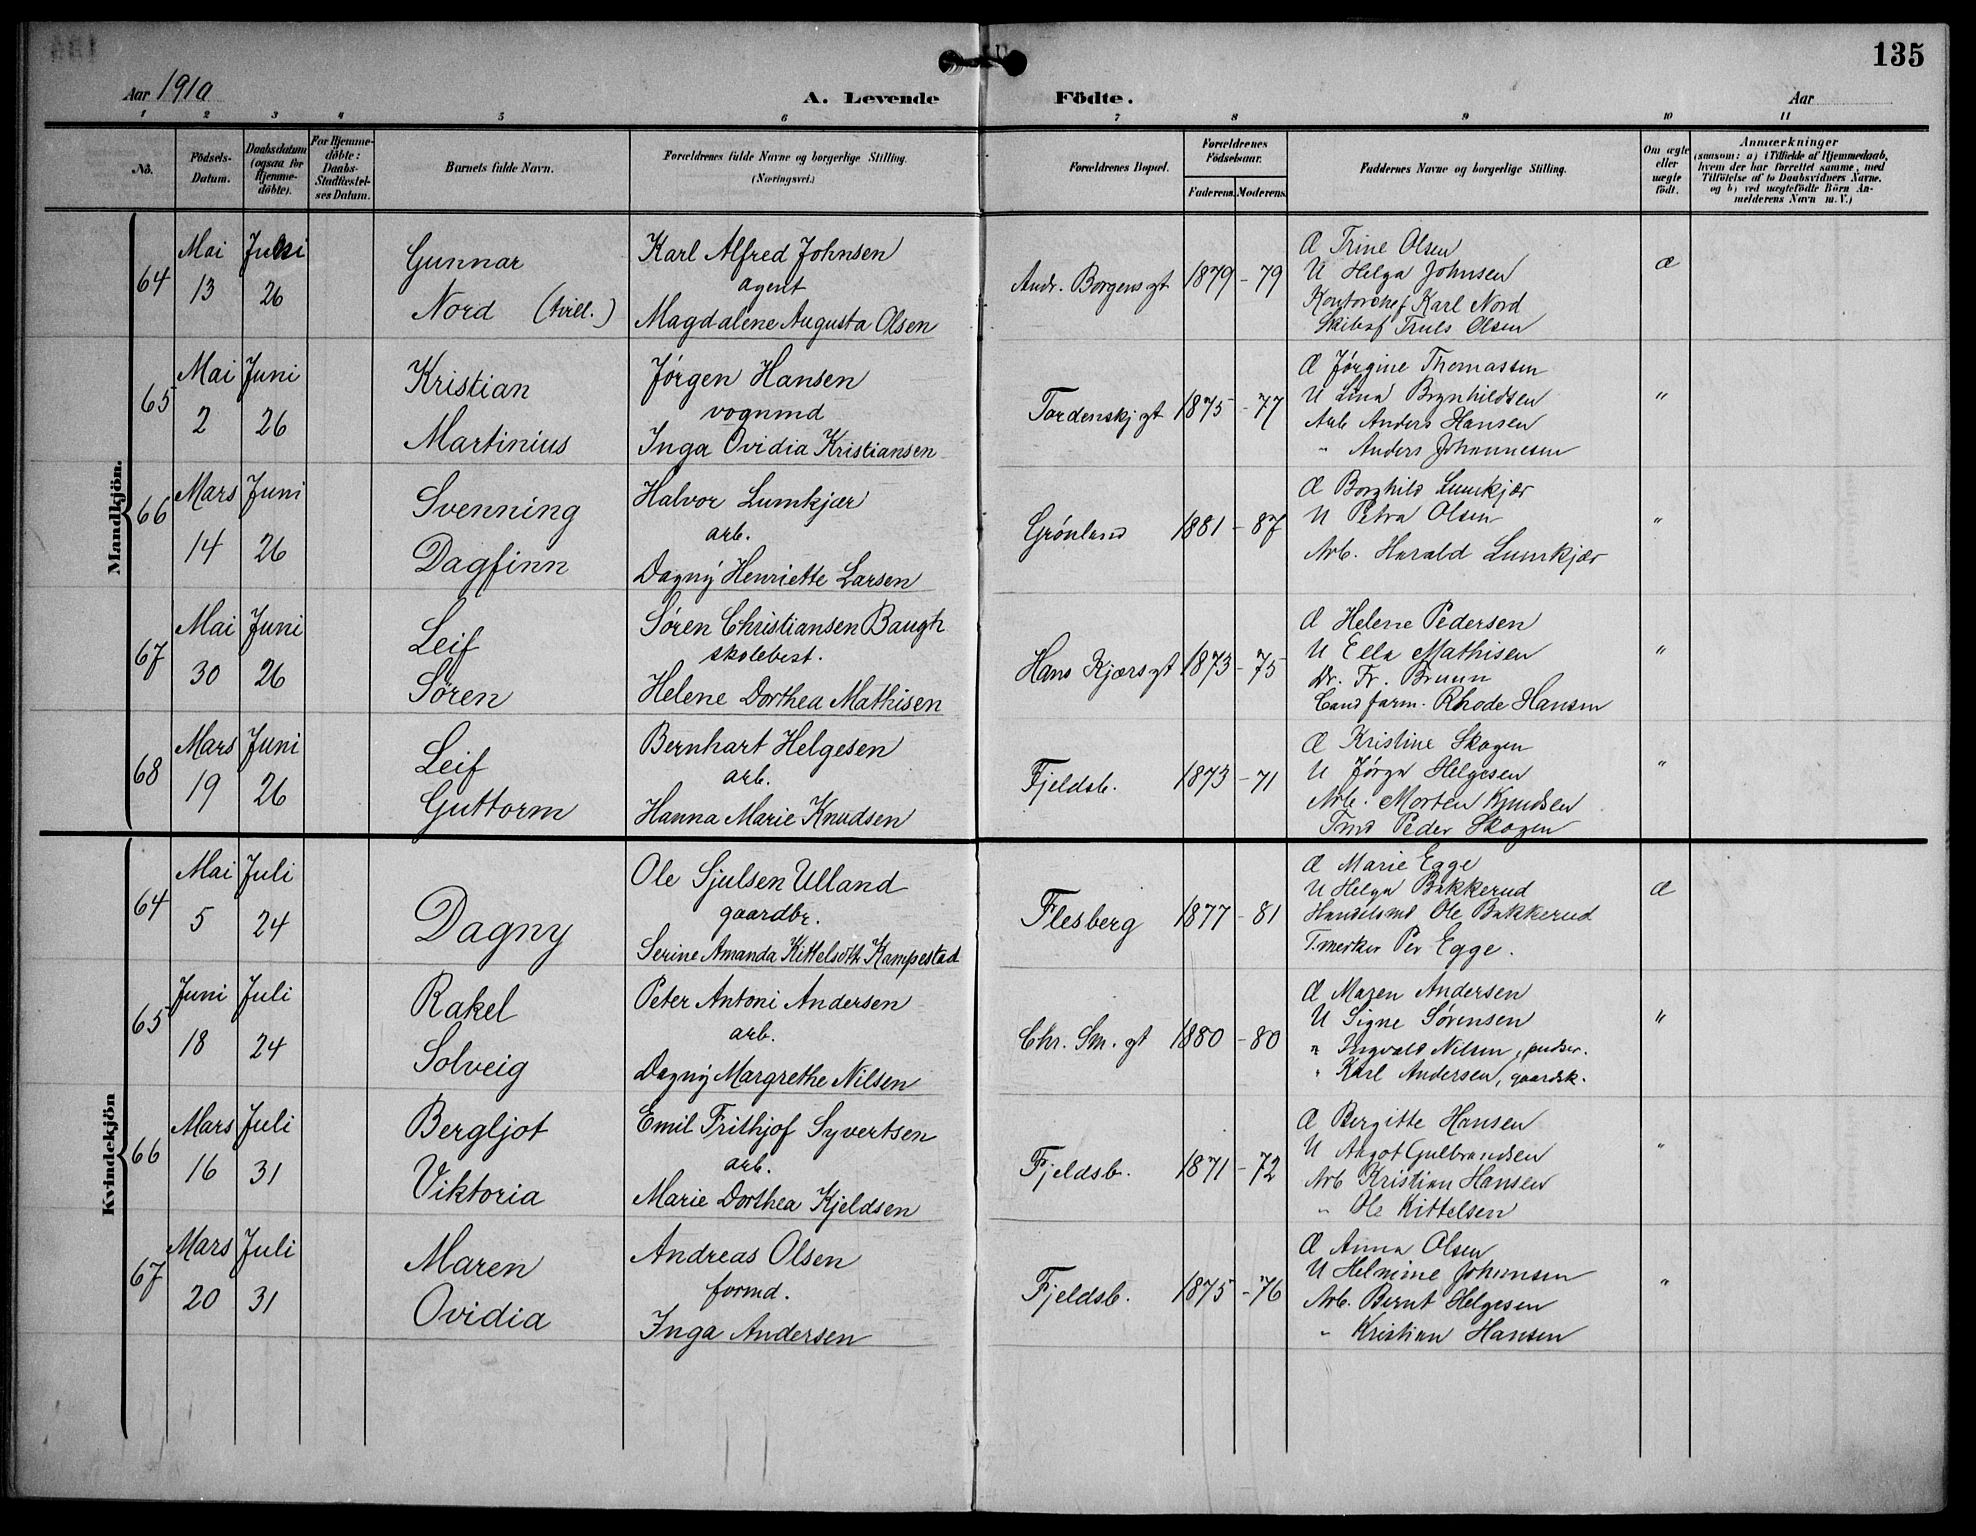 135
Aar 1910
A. Levende Födte.
Aar
1 2 3 4 5 6 7 8 9 10 11
No.
Födsels-
Datum.
Daabsdatum
(ogsaa for
Hjemme-
döbte).
For Hjemme-
döbte:
Daabs-
Stadfæstel-
ses Datum.
Barnets fulde Navn.
Forældrenes fulde Navne og borgerlige Stilling.
(Næringsvei.)
Forældrenes Bopæl.
Forældrenes
Födselsaar.
Faderens. Moderens.
Faddernes Navne og borgerlige Stilling.
Om ægte
eller
uægte
födt.
Anmærkninger
(saasom: a) i Tilfælde af Hjemmedaab,
hvem der har forrettet samme, med
Tilföielse af to Daabsvidners Navne.
og b) ved uægtefödte Börn An-
melderens Navn m. V.)
Mandkjön.
64
Mai
13
Juni
26
Gunnar
Nord (tvill.)
Karl Alfred Johnsen
agent
Magdalene Augusta Olsen
Andr. Borgensgt
1879 - 79
Æ Trine Olsen
U Helga Johnsen
Kontorchef Karl Nord
Skibsf Truls Olsen
Æ
65
Mai
2
Juni
26
Kristian
Martinius
Jørgen Hansen
vognmd
Inga Ovidia Kristiansen
Tordenskj gt
1875 - 77
Æ Jørgine Thomassen
U Lina Brynhildsen
Arb Anders Hansen
" Anders Johannesen
"
66
Mars
14
Juni
26
Svenning
Dagfinn
Halvor Lumkjær
arb.
Dagny Henriette Larsen
Grønland
1881 - 87
Æ Borghild Lumkjær
U Petra Olsen
Arb. Harald Lumkjær
"
67
Mai
30
Juni
26
Leif
Søren
Søren Christiansen Baugh
skolebest.
Helene Dorthea Mathisen
Hans Kjærs gt
1873 - 75
Æ Helene Pedersen
U Ella Mathisen
Dr. Fr. Bruun
Cand farm. Rhode Hansen
"
68
Mars
19
Juni
26
Leif
Guttorm
Bernhart Helgesen
arb.
Hanna Marie Knudsen
Fjeldsb.
1873 - 71
Æ Kristine Skogen
U Jørga Helgesen
Arb. Morten Knudsen
Tmd Peder Skogen
"
Kvindekjön
64
Mai
5
Juli
24
Dagny
Ole Sjulsen Ulland
gaardbr.
Serine Amanda Kittelsdtr Kampestad
Flesberg
1877 - 81
Æ Marie Egge
U Helga Bakkerud
Handelsmd Ole Bakkerud
T.merker Per Egge.
Æ
65
Juni
18
Juli
24
Rakel
Solveig
Peter Antoni Andersen
arb.
Dagny Margrethe Nilsen
Chr. Sm. gt
1880 - 80
Æ Maren Andersen
U Signe Sørensen
" Ingvald Nilsen, pudser.
" Karl Andersen, gaardsk.
"
66
Mars
16
Juli
31
Bergljot
Viktoria
Emil Frithjof Syvertsen
arb.
Marie Dorthea Kjeldsen
Fjeldsb.
1871 - 72
Æ Bergitte Hansen
U Aagot Gulbrandsen
Arb Kristian Hansen
" Ole Kittelsen
"
67
Mars
20
Juli
31
Maren
Ovidia
Andreas Olsen
formd.
Inga Andersen
Fjeldsb.
1875 - 76
Æ Anna Olsen
U Helmine Johansen
Arb. Bernt Helgesen
" Kristian Hansen
"